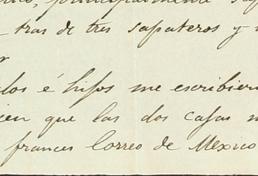 tras de tres sapateros y
los é hijos me escribier
en que las dos cajas
frances Correo de Mexico